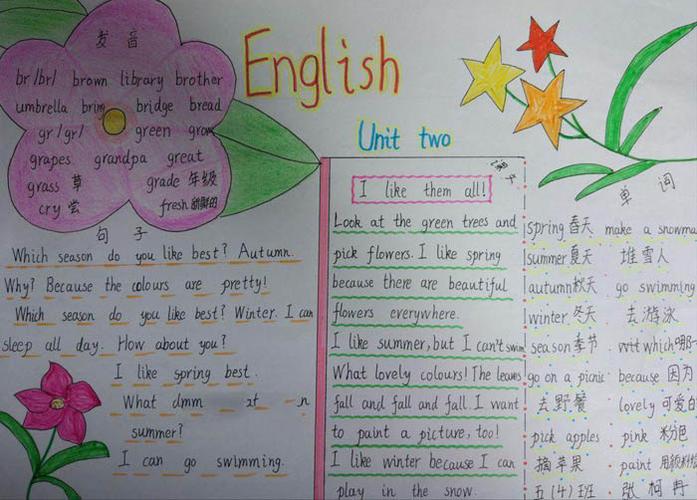 English
Unit two
发音
br/br/ brown library brother
umbrella brim bridge bread
gr/gr/ green grow
grapes grandpa great
grass 草 grade 年级
cry 尝 fresh 新鲜的
句子
Which season do you like best? Autumn.
Why? Because the colours are pretty!
Which season do you like best? Winter. I can
sleep all day. How about you?
I like spring best.
What
summer?
I can go swimming.
课文
I like them all!
Look at the green trees and
pick flowers. I like spring
because there are beautiful
flowers everywhere.
I like summer, but I can't swim
What lovely colours! The leaves
fall and fall and fall. I want
to paint a picture, too!
I like winter because I can
play in the snow.
单词
spring 春天 make a snowma
summer 夏天 堆雪人
autumn 秋天 go swimming
winter 冬天 去游泳
season 季节 which 哪一
go on a picnic because 因为
去野餐 lovely 可爱的
pick apples pink 粉
摘苹果 paint 用颜料
五(4)班 张柯冉